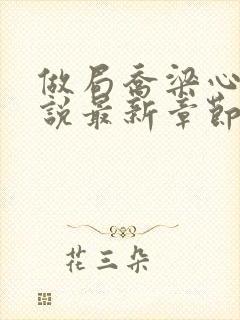 做局喬梁心
說最新章節
花三朵